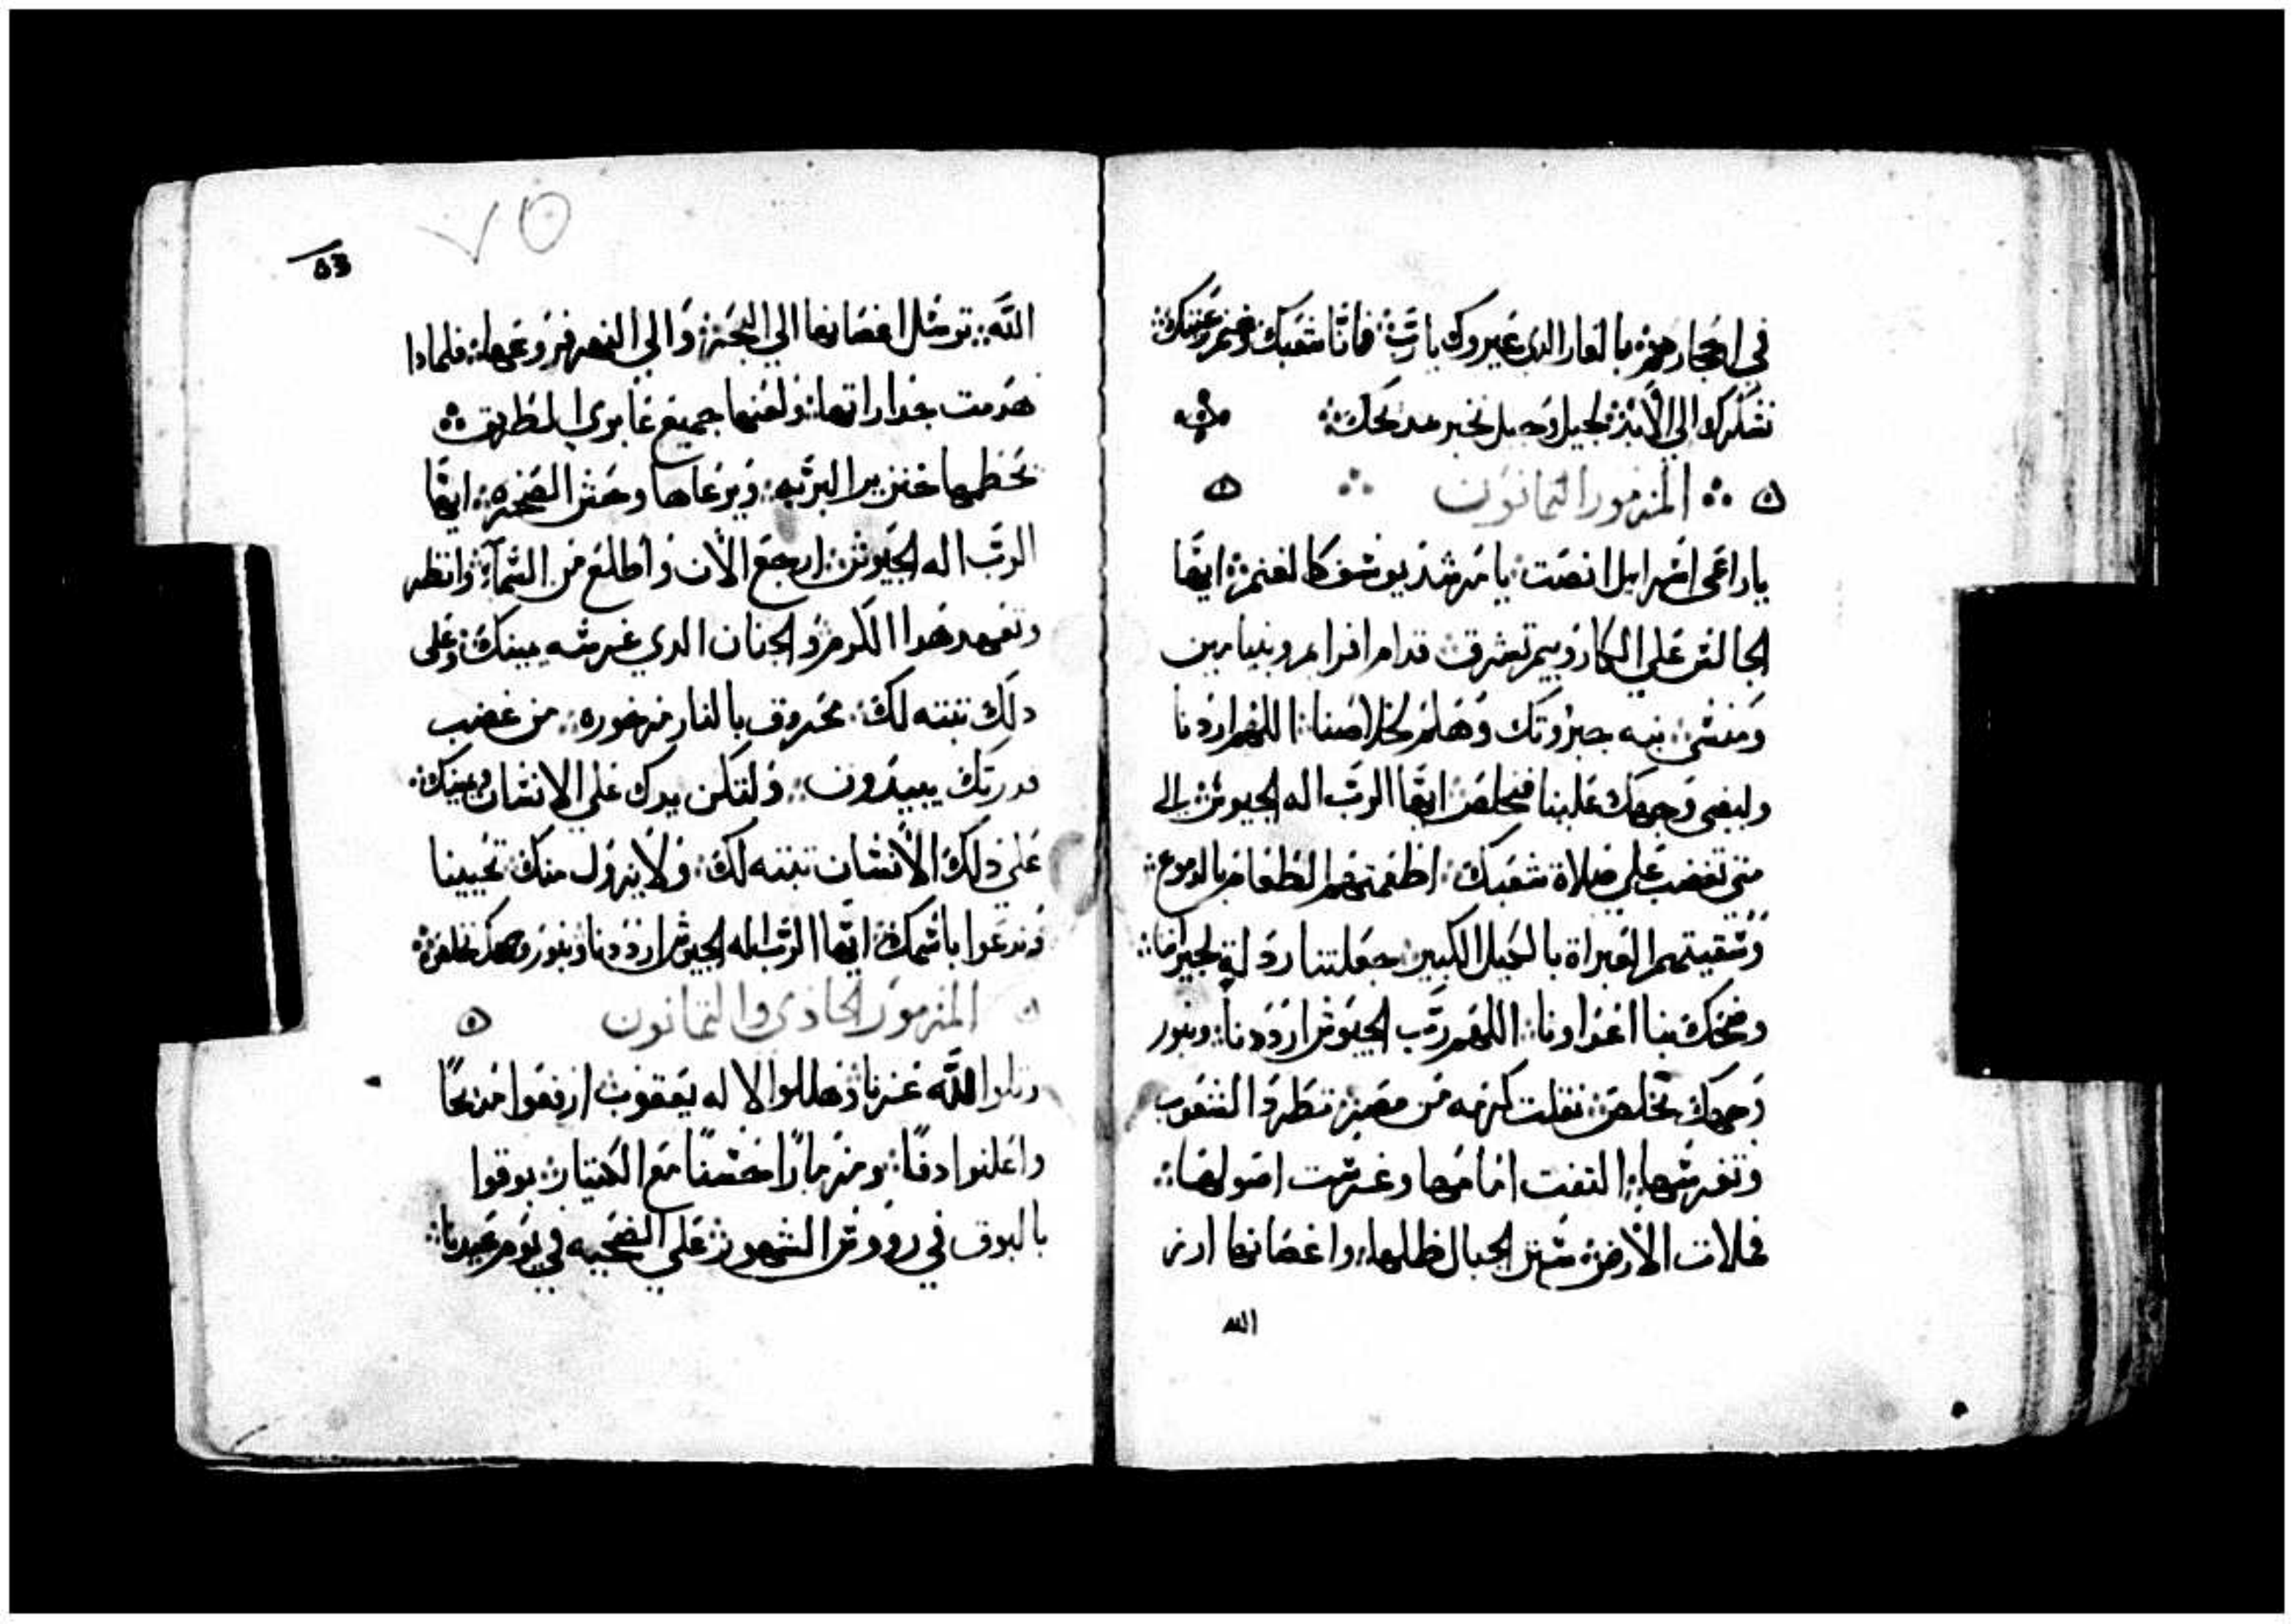 في احجارهم بالعار الدي عيروك يا رب فاننا شعبك وغنم رعيتك
نشكرك الي الأبد لجيل وجيل نخبر مدىحك
المزمور التمانون
يا راعي اسرايل انصت يا مرشد يوسف كالغنم ايها
الجالس علي الكاروبيم تشرق قدام افرايم وبنيامين
ومنسي نبه جبروتك وهلم لخلاصنا اللهم ارددنا
وليضي وجهك علينا فنخلص ايها الرب اله الجيوش الى
متي تغضب علي صلاة شعبك اطعمتهم الطعام بالدموع
وسقيتهم العبراة بالكيل الكبير جعلتنا ردلة لجيراننا
وضحك بنا اعداونا اللهم رب الجيوش ارددنا وبنور
وجهك نخلص نقلت كرمه من مصر تطرد الشعوب
وتغرسها التفت امامها وغرست اصولها
فملات الارض ستر الجبال ظلها واغصانها ارز
الله
٧٥
53
الله ترسل اغصانها الي البحر والي النهر فروعها فلمادا
هدمت جداراتها ولعنها جميع عابري الطريق
يحطمها خنزير البريه ويرعاها وحش الصحره ايها
الرب اله الجيوش ارجع الأن واطلع من السمآء وانظر
وتعهد هدا الكرم والجنان الدي غرسته يمينك وعلى
دلك تبته لك محروق بالنار مهخوره من غضب
يبيدون ولتكن يدك علي الانسان يمينك
علي دلك الأنسان تبته لك ولا يزول منك تحيينا
وندعوا باسمك ايها الرب اله الجيوش ارددنا وبنور وجهك نخلص
المزمور الحادي والتمانون
رتلوا الله عزنا وهللوا لاله يعقوب ارفعوا مديحًا
واعلنوا دفًا ومزمارًا حسنًا مع الكنيار بوقوا
بالبوق في رووس الشهور علي الضحيه في يوم عيدنا